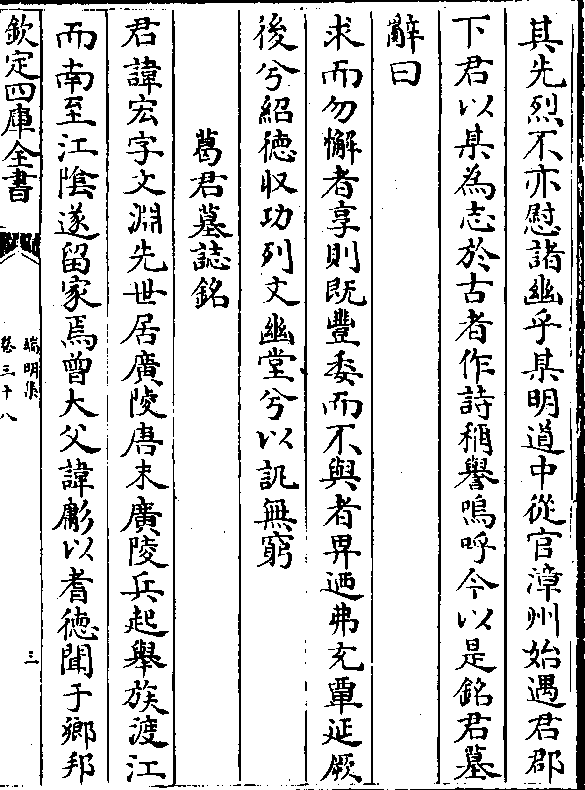 其先烈不亦慰諸幽乎某明道中從官漳州始遇君郡
下君以某為志於古者作詩稱譽嗚呼今以是銘君墓
辭曰
求而勿懈者享則既豐委而不與者畀迺弗充覃延厥
後兮紹德収功列文幽堂兮以訊無窮
葛君墓誌銘
君諱宏字文淵先世居廣陵唐末廣陵兵起舉族渡江
而南至江陰遂留家焉曾大父諱彪以耆徳聞于鄉邦
欽定四庫全書
端明集
卷三十八
三